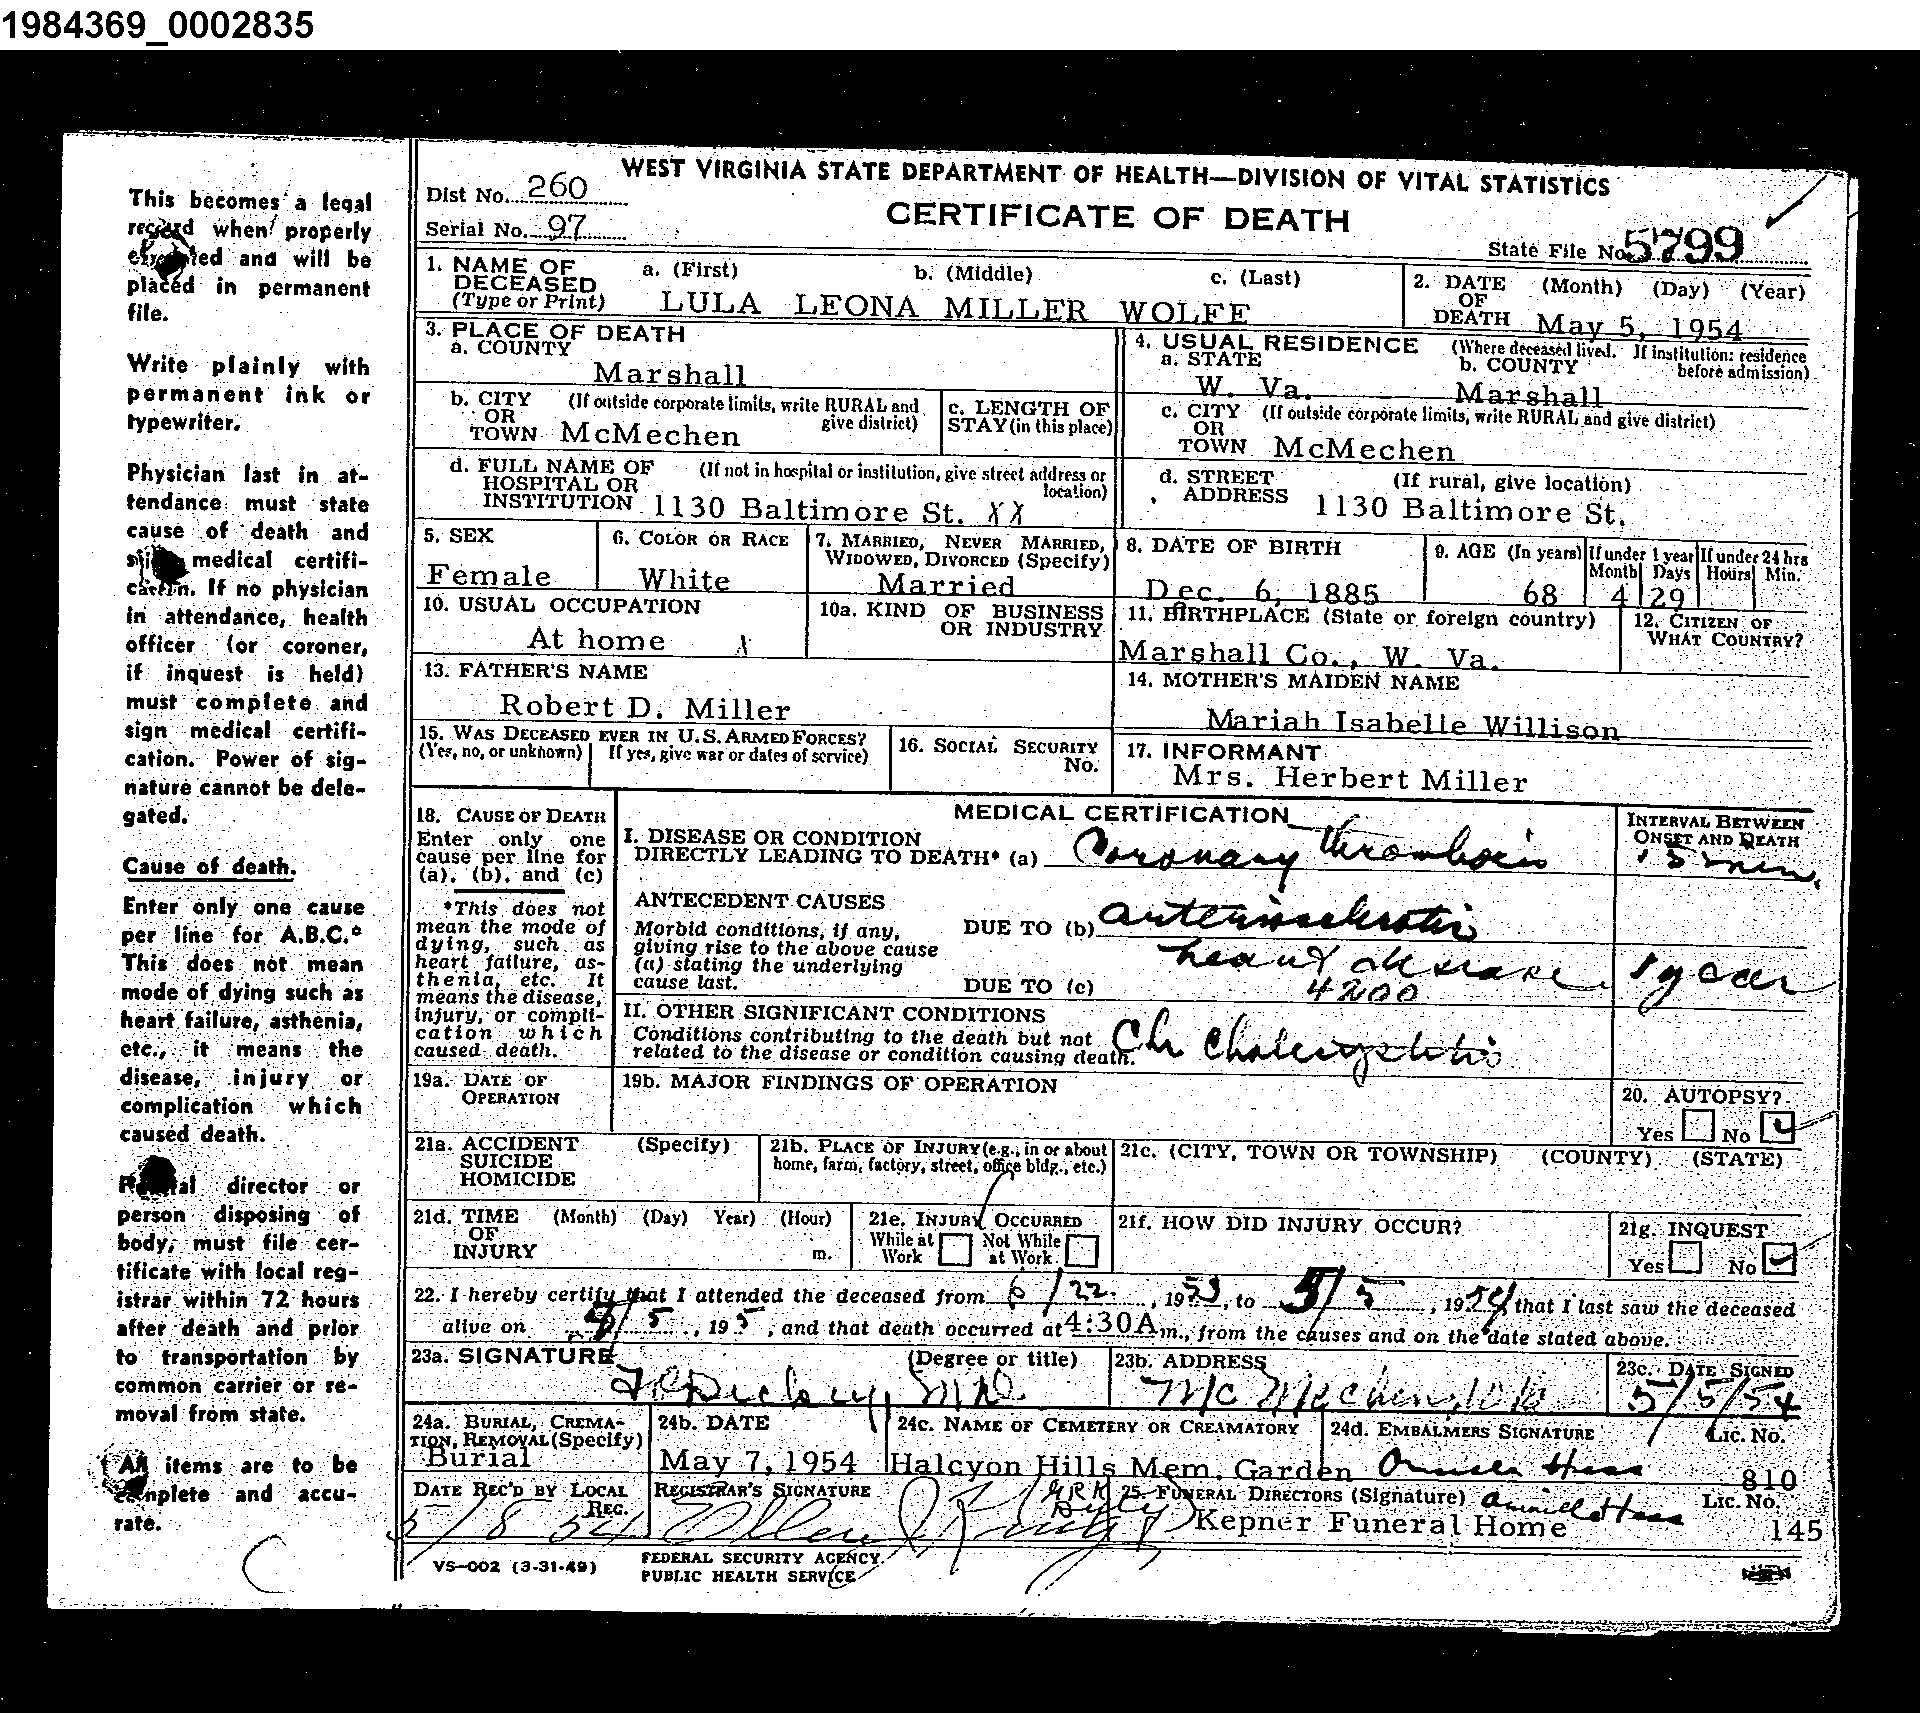 1984369_0002835
This becomes a legal
record when properly
executed and will be
placed in permanent
file.
Write plainly with
permanent ink or
typewriter.
Physician last in at-
tendance must state
cause of death and
sign medical certifi-
cation. If no physician
in attendance, health
officer (or coroner,
if inquest is held)
must complete and
sign medical certifi-
cation. Power of sig-
nature cannot be dele-
gated.
Cause of death.
Enter only one cause
per line for A.B.C.*
This does not mean
mode of dying such as
heart failure, asthenia,
etc., it means the
disease, injury or
complication which
caused death.
Funeral director or
person disposing of
body, must file cer-
tificate with local reg-
istrar within 72 hours
after death and prior
to transportation by
common carrier or re-
moval from state.
All items are to be
complete and accu-
rate.
WEST VIRGINIA STATE DEPARTMENT OF HEALTH—DIVISION OF VITAL STATISTICS
Dist No. 260
CERTIFICATE OF DEATH
Serial No. 97
State File No. 5799
1. NAME OF DECEASED (Type or Print) a. (First) b. (Middle) c. (Last)
LULA LEONA MILLER WOLFE
2. DATE OF DEATH (Month) (Day) (Year)
May 5, 1954
3. PLACE OF DEATH
a. COUNTY
Marshall
4. USUAL RESIDENCE (Where deceased lived. If institution: residence before admission)
a. STATE b. COUNTY
W. Va. Marshall
b. CITY OR TOWN (If outside corporate limits, write RURAL and give district)
McMechen
c. LENGTH OF STAY (in this place)
c. CITY OR TOWN (If outside corporate limits, write RURAL and give district)
McMechen
d. FULL NAME OF HOSPITAL OR INSTITUTION (If not in hospital or institution, give street address or location)
1130 Baltimore St. XX
d. STREET ADDRESS (If rural, give location)
1130 Baltimore St.
5. SEX
Female
6. COLOR OR RACE
White
7. MARRIED, NEVER MARRIED, WIDOWED, DIVORCED (Specify)
Married
8. DATE OF BIRTH
Dec. 6, 1885
9. AGE (In years) If under 1 year Month Days If under 24 hrs Hours Min.
68 4 29
10. USUAL OCCUPATION
At home
10a. KIND OF BUSINESS OR INDUSTRY
11. BIRTHPLACE (State or foreign country)
Marshall Co., W. Va.
12. CITIZEN OF WHAT COUNTRY?
13. FATHER'S NAME
Robert D. Miller
14. MOTHER'S MAIDEN NAME
Mariah Isabelle Willison
15. WAS DECEASED EVER IN U.S. ARMED FORCES?
(Yes, no, or unknown) If yes, give war or dates of service)
16. SOCIAL SECURITY No.
17. INFORMANT
Mrs. Herbert Miller
18. CAUSE OF DEATH
Enter only one
cause per line for
(a), (b), and (c)
*This does not
mean the mode of
dying, such as
heart failure, as-
thenia, etc. It
means the disease,
injury, or compli-
cation which
caused death.
MEDICAL CERTIFICATION
INTERVAL BETWEEN ONSET AND DEATH
I. DISEASE OR CONDITION
DIRECTLY LEADING TO DEATH* (a) Coronary thrombosis 15 min.
ANTECEDENT CAUSES
Morbid conditions, if any,
giving rise to the above cause
(a) stating the underlying
cause last.
DUE TO (b) arteriosclerotic
heart disease 1 year
DUE TO (c) 4200
II. OTHER SIGNIFICANT CONDITIONS
Conditions contributing to the death but not
related to the disease or condition causing death.
Chr Cholecystitis
19a. DATE OF OPERATION
19b. MAJOR FINDINGS OF OPERATION
20. AUTOPSY?
Yes No
21a. ACCIDENT SUICIDE HOMICIDE (Specify)
21b. PLACE OF INJURY (e.g., in or about home, farm, factory, street, office bldg., etc.)
21c. (CITY, TOWN OR TOWNSHIP) (COUNTY) (STATE)
21d. TIME OF INJURY (Month) (Day) Year) (Hour) m.
21e. INJURY OCCURRED
While at Work Not While at Work
21f. HOW DID INJURY OCCUR?
21g. INQUEST
Yes No
22. I hereby certify that I attended the deceased from 6/22, 1953, to 5/5, 1954, that I last saw the deceased
alive on 5/5, 195, and that death occurred at 4:30A m., from the causes and on the date stated above.
23a. SIGNATURE (Degree or title)
MD
23b. ADDRESS
McMechen, W Va
23c. DATE SIGNED
5/5/54
24a. BURIAL, CREMA-
TION, REMOVAL (Specify)
Burial
24b. DATE
May 7, 1954
24c. NAME OF CEMETERY OR CREAMATORY
Halcyon Hills Mem. Garden
24d. EMBALMERS SIGNATURE Lic. No.
810
DATE REC'D BY LOCAL REG.
5/8 54
REGISTRAR'S SIGNATURE
25. FUNERAL DIRECTORS (Signature) Lic. No.
Kepner Funeral Home 145
VS-002 (3-31-49)
FEDERAL SECURITY AGENCY.
PUBLIC HEALTH SERVICE